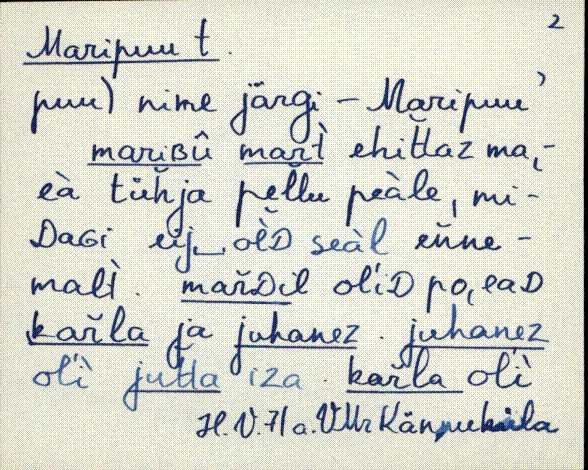 2
Maripuu t.
puu) nime järgi – Maripuu'
mariʙû mar̆t̀ ehit̆taz ma,-
eà tühja pel̆lu peàle, mi-
DaGi ei̯j‿ ol̆D seàl en̆ne-
malt̀. mar̆Dil ol'iD po,eaD
kar̆la ja juhanez. juhanez
ol'ì jut̆ta iza. kar̆la ol'ì
H. V. 71 a. VMr Kännuküla